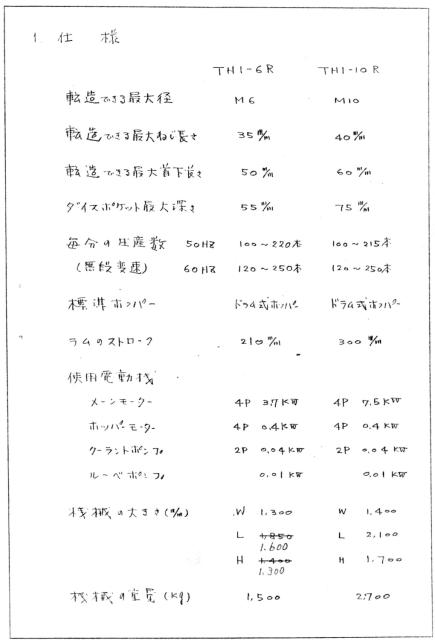 1. 仕 様
THI-6R THI-10R
転造できる最大径 M6 M10
転造できる最大ねじ長さ 35 m/m 40 m/m
転造できる最大首下長さ 50 m/m 60 m/m
ダイスポケット最大深さ 55 m/m 75 m/m
毎分の生産数 50HZ 100～220本 100～215本
(無段変速) 60HZ 120～250本 120～250本
標準ホッパー ドラム式ホッパー ドラム式ホッパー
ラムのストローク 210 m/m 300 m/m
使用電動機
メーンモーター 4P 3.7KW 4P 7.5KW
ホッパーモーター 4P 0.4KW 4P 0.4KW
クーラントポンプ 2P 0.04KW 2P 0.04KW
ルーベポンプ 0.01KW 0.01KW
機械の大きさ(m/m) W 1,300 W 1,400
L 1,850 L 2,100
1.600
H 1,400 H 1,700
1.300
機械の重量(Kg) 1,500 2,700